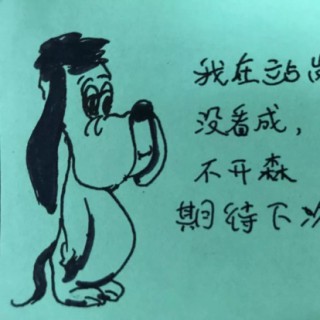 我在站岗
没看成，
不开森
期待下次